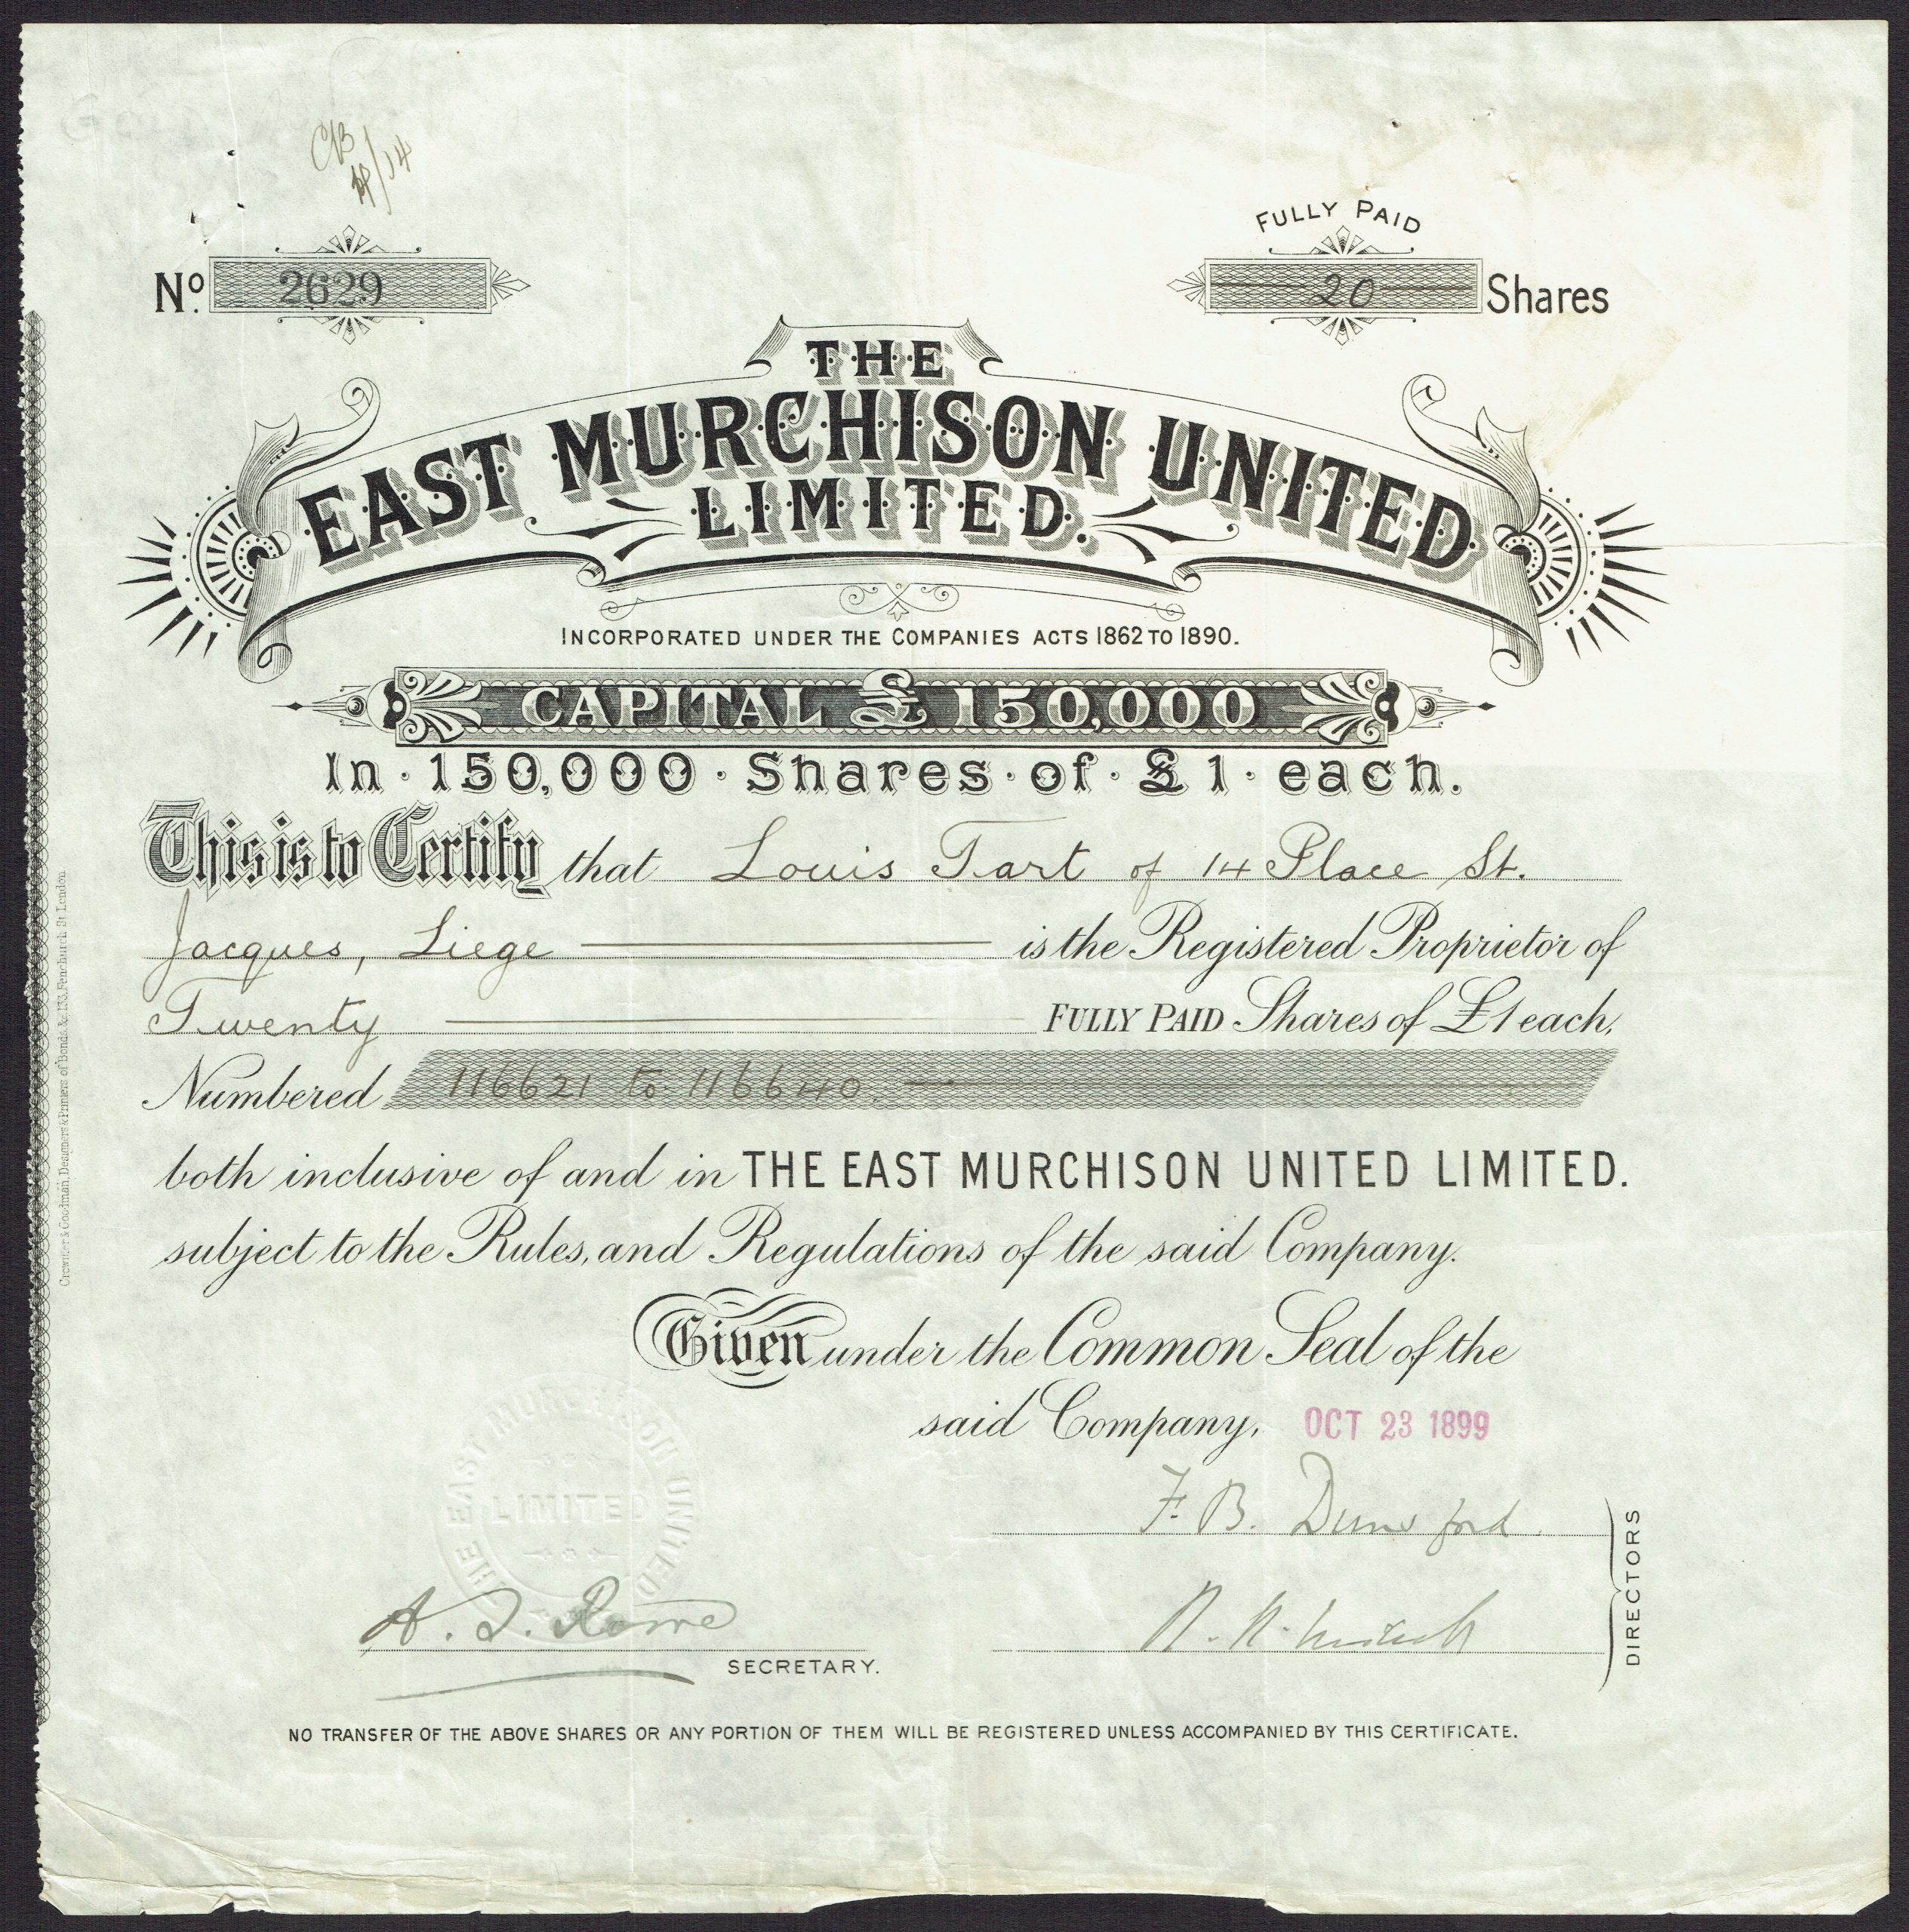 CB
14
FULLY PAID
No. 2629
20 Shares
THE
EAST MURCHISON UNITED
LIMITED.
INCORPORATED UNDER THE COMPANIES ACTS 1862 TO 1890.
CAPITAL £150,000
In · 150,000 · Shares · of · £1 · each.
This is to Certify that Louis Tart of 14 Place St.
Jacques, Liege is the Registered Proprietor of
Twenty FULLY PAID Shares of £1 each,
Numbered 116621 to 116640.
both inclusive of and in THE EAST MURCHISON UNITED LIMITED.
subject to the Rules, and Regulations of the said Company.
Given under the Common Seal of the
said Company, OCT 23 1899
THE EAST MURCHISON UNITED
LIMITED
F. B. Dunsford.
DIRECTORS
SECRETARY.
NO TRANSFER OF THE ABOVE SHARES OR ANY PORTION OF THEM WILL BE REGISTERED UNLESS ACCOMPANIED BY THIS CERTIFICATE.
Crowther & Goodman, Designers & Printers of Bonds &c. 133, Fenchurch St London